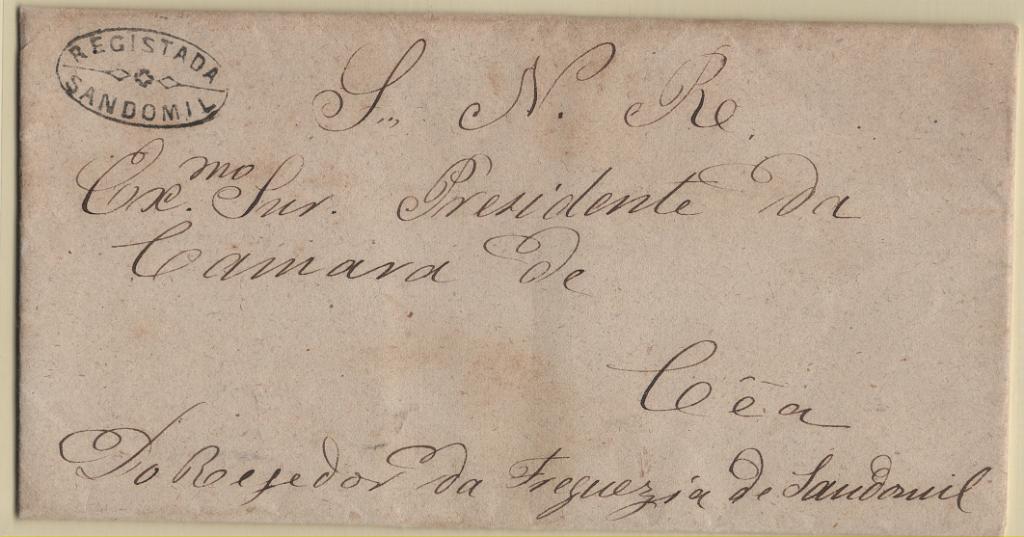 REGISTADA
SANDOMIL
S. N. Re.
Ex.mo Snr. Presidente da
Camara de
Cêa
Do Regedor da Freguezia de Sandomil